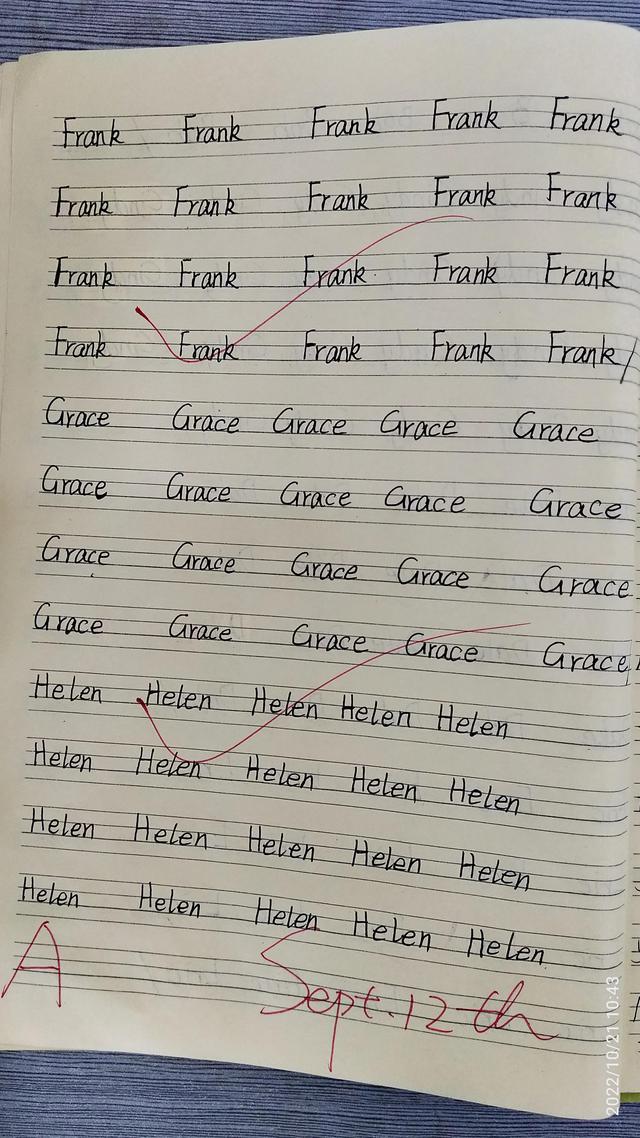 Frank Frank Frank Frank Frank
Frank Frank Frank Frank Frank
Frank Frank Frank Frank Frank
Frank Frank Frank Frank Frank/
Grace Grace Grace Grace Grace
Grace Grace Grace Grace Grace
Grace Grace Grace Grace Grace
Grace Grace Grace Grace Grace
Helen Helen Helen Helen Helen
Helen Helen Helen Helen Helen
Helen Helen Helen Helen Helen
Helen Helen Helen Helen Helen
A Sept.12th
2022/10/21 10:43